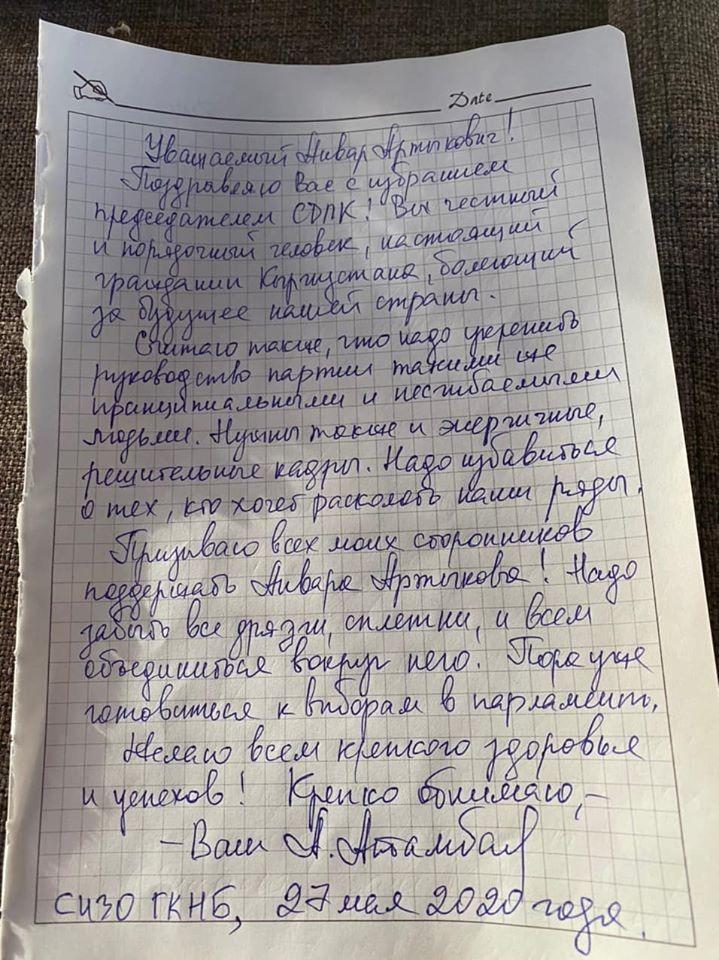 Date
Уважаемый Анвар Артыкович!
Поздравляю Вас с избранием
председателем СДПК! Вы честный
и порядочный человек, настоящий
гражданин Кыргызстана, болеющий
за будущее нашей страны.
Считаю также, что надо укрепить
руководство партии такими же
принципиальными и несгибаемыми
людьми. Нужны также и энергичные,
решительные кадры. Надо избавиться
о тех, кто хочет расколоть наши ряды.
Призываю всех моих сторонников
поддержать Анвара Артыкова! Надо
забыть все дрязги, сплетни, и всем
объединиться вокруг него. Пора уже
готовиться к выборам в парламент.
Желаю всем крепкого здоровья
и успехов! Крепко обнимаю, –
– Ваш А. Атамбаев
СИЗО ГКНБ, 27 мая 2020 года.